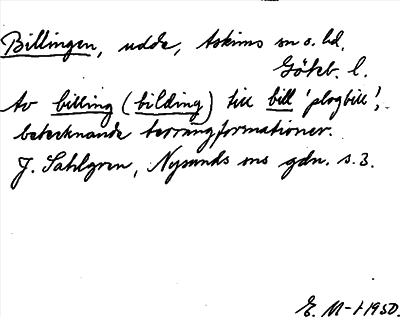 Billingen, udde, Askims sn o. hd.
Göteb. l.
Av billing (bilding) till bill 'plogbill',
betecknande terrängformationer.
J. Sahlgren, Nysunds sns gdn. s. 3.
E. M-t 1950.